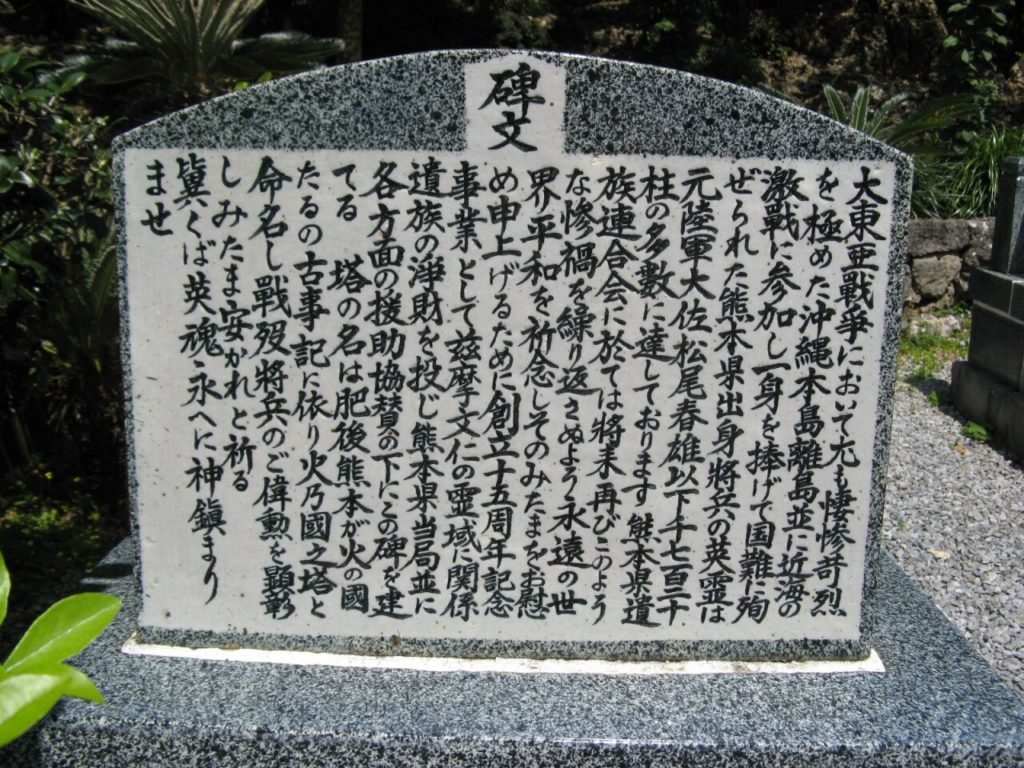 碑文
大東亜戰爭において尤も悽惨苛烈
を極めた沖縄本島離島並に近海の
激戰に参加し一身を捧げて国難に殉
ぜられた熊本県出身將兵の英霊は
元陸軍大佐松尾春雄以下千七百三十
柱の多數に達しております 熊本県遺
族連合会に於ては將来再びこのよう
な惨禍を繰り返さぬよう永遠の世
界平和を祈念しそのみたまをお慰
め申上げるために創立十五周年記念
事業として玆摩文仁の霊域に関係
遺族の浄財を投じ熊本県当局並に
各方面の援助協賛の下にこの碑を建
てる 塔の名は肥後熊本が火の國
たるの古事記に依り火乃國之塔と
命名し戰歿將兵のご偉勲を顕彰
しみたま安かれと祈る
冀くば英魂永へに神鎮まり
ませ